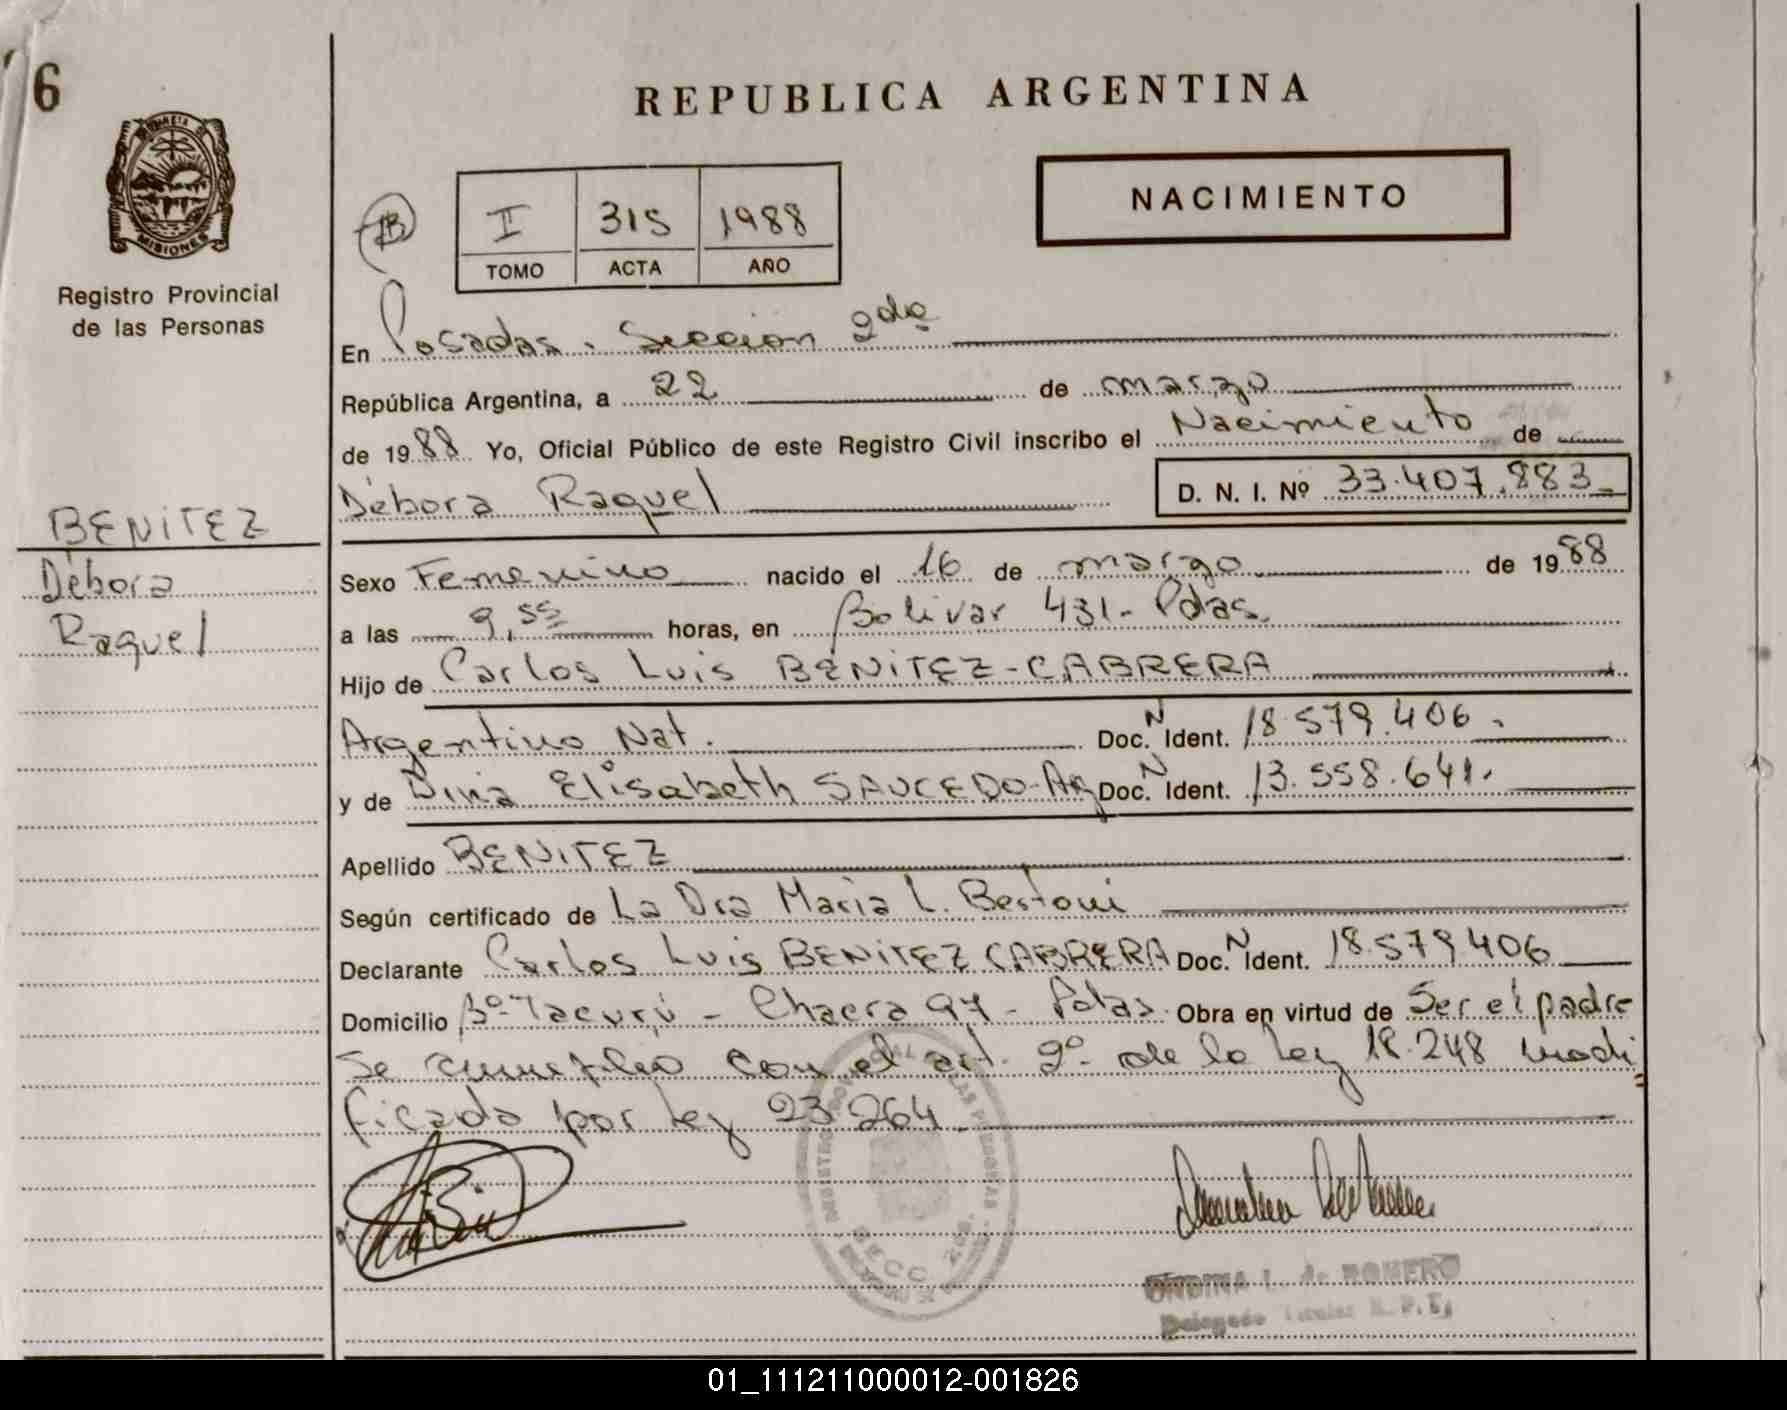 6
REPUBLICA ARGENTINA
MISIONES
Registro Provincial
de las Personas
II 315 1988
TOMO ACTA AÑO
NACIMIENTO
En Posadas. Seccion 2da
República Argentina, a 22 de marzo
de 1988 Yo, Oficial Público de este Registro Civil inscribo el Nacimiento de
Débora Raquel D. N. I. Nº 33.407.883
BENITEZ
Débora
Raquel
Sexo Femenino nacido el 16 de marzo de 1988
a las 9,55 horas, en Bolivar 431 - Pdas.
Hijo de Carlos Luis BENITEZ-CABRERA
Argentino Nat. Doc. N Ident. 18.579.406.
y de Dina Elisabeth SAUCEDO-Ag Doc. N Ident. 13.558.641.
Apellido BENITEZ
Según certificado de La Dra Maria L. Bertoni
Declarante Carlos Luis BENITEZ CABRERA Doc. N Ident. 18.579.406
Domicilio Bº Tacurú - Chacra 97 - Pdas. Obra en virtud de Ser el padre
Se cumplio con el art. 2º de la Ley 18.248 modi
ficada por Ley 23.264.
SECC 2da.
ONDINA L. de ROMERO
Delegado Titular R. P. P.
01_111211000012-001826